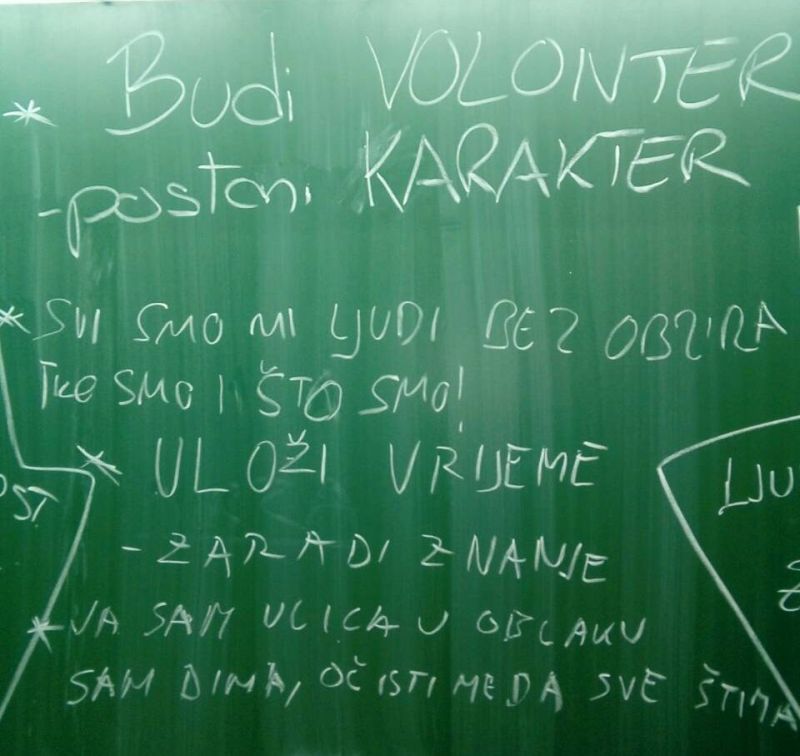 * Budi VOLONTER
-postani KARAKTER
* SVI SMO MI LJUDI BEZ OBZIRA
TKO SMO I ŠTO SMO!
* ULOŽI VRIJEME
- ZARADI ZNANJE
* JA SAM ULICA U OBLAKU
SAM DIMA, OČISTI ME DA SVE ŠTIMA